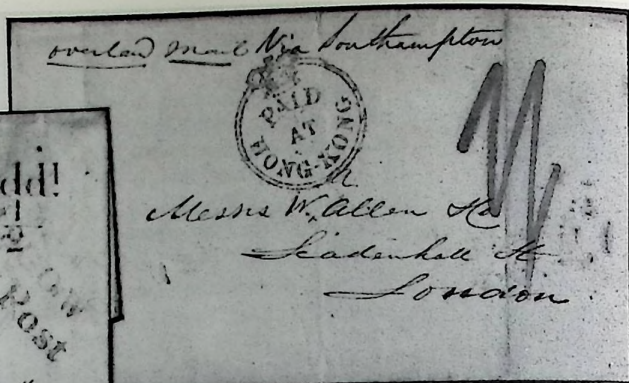 overland mail Via Southampton
PAID
AT
HONG-KONG
Messrs W. Allen & Co
Leadenhall St
London
dd!
Post